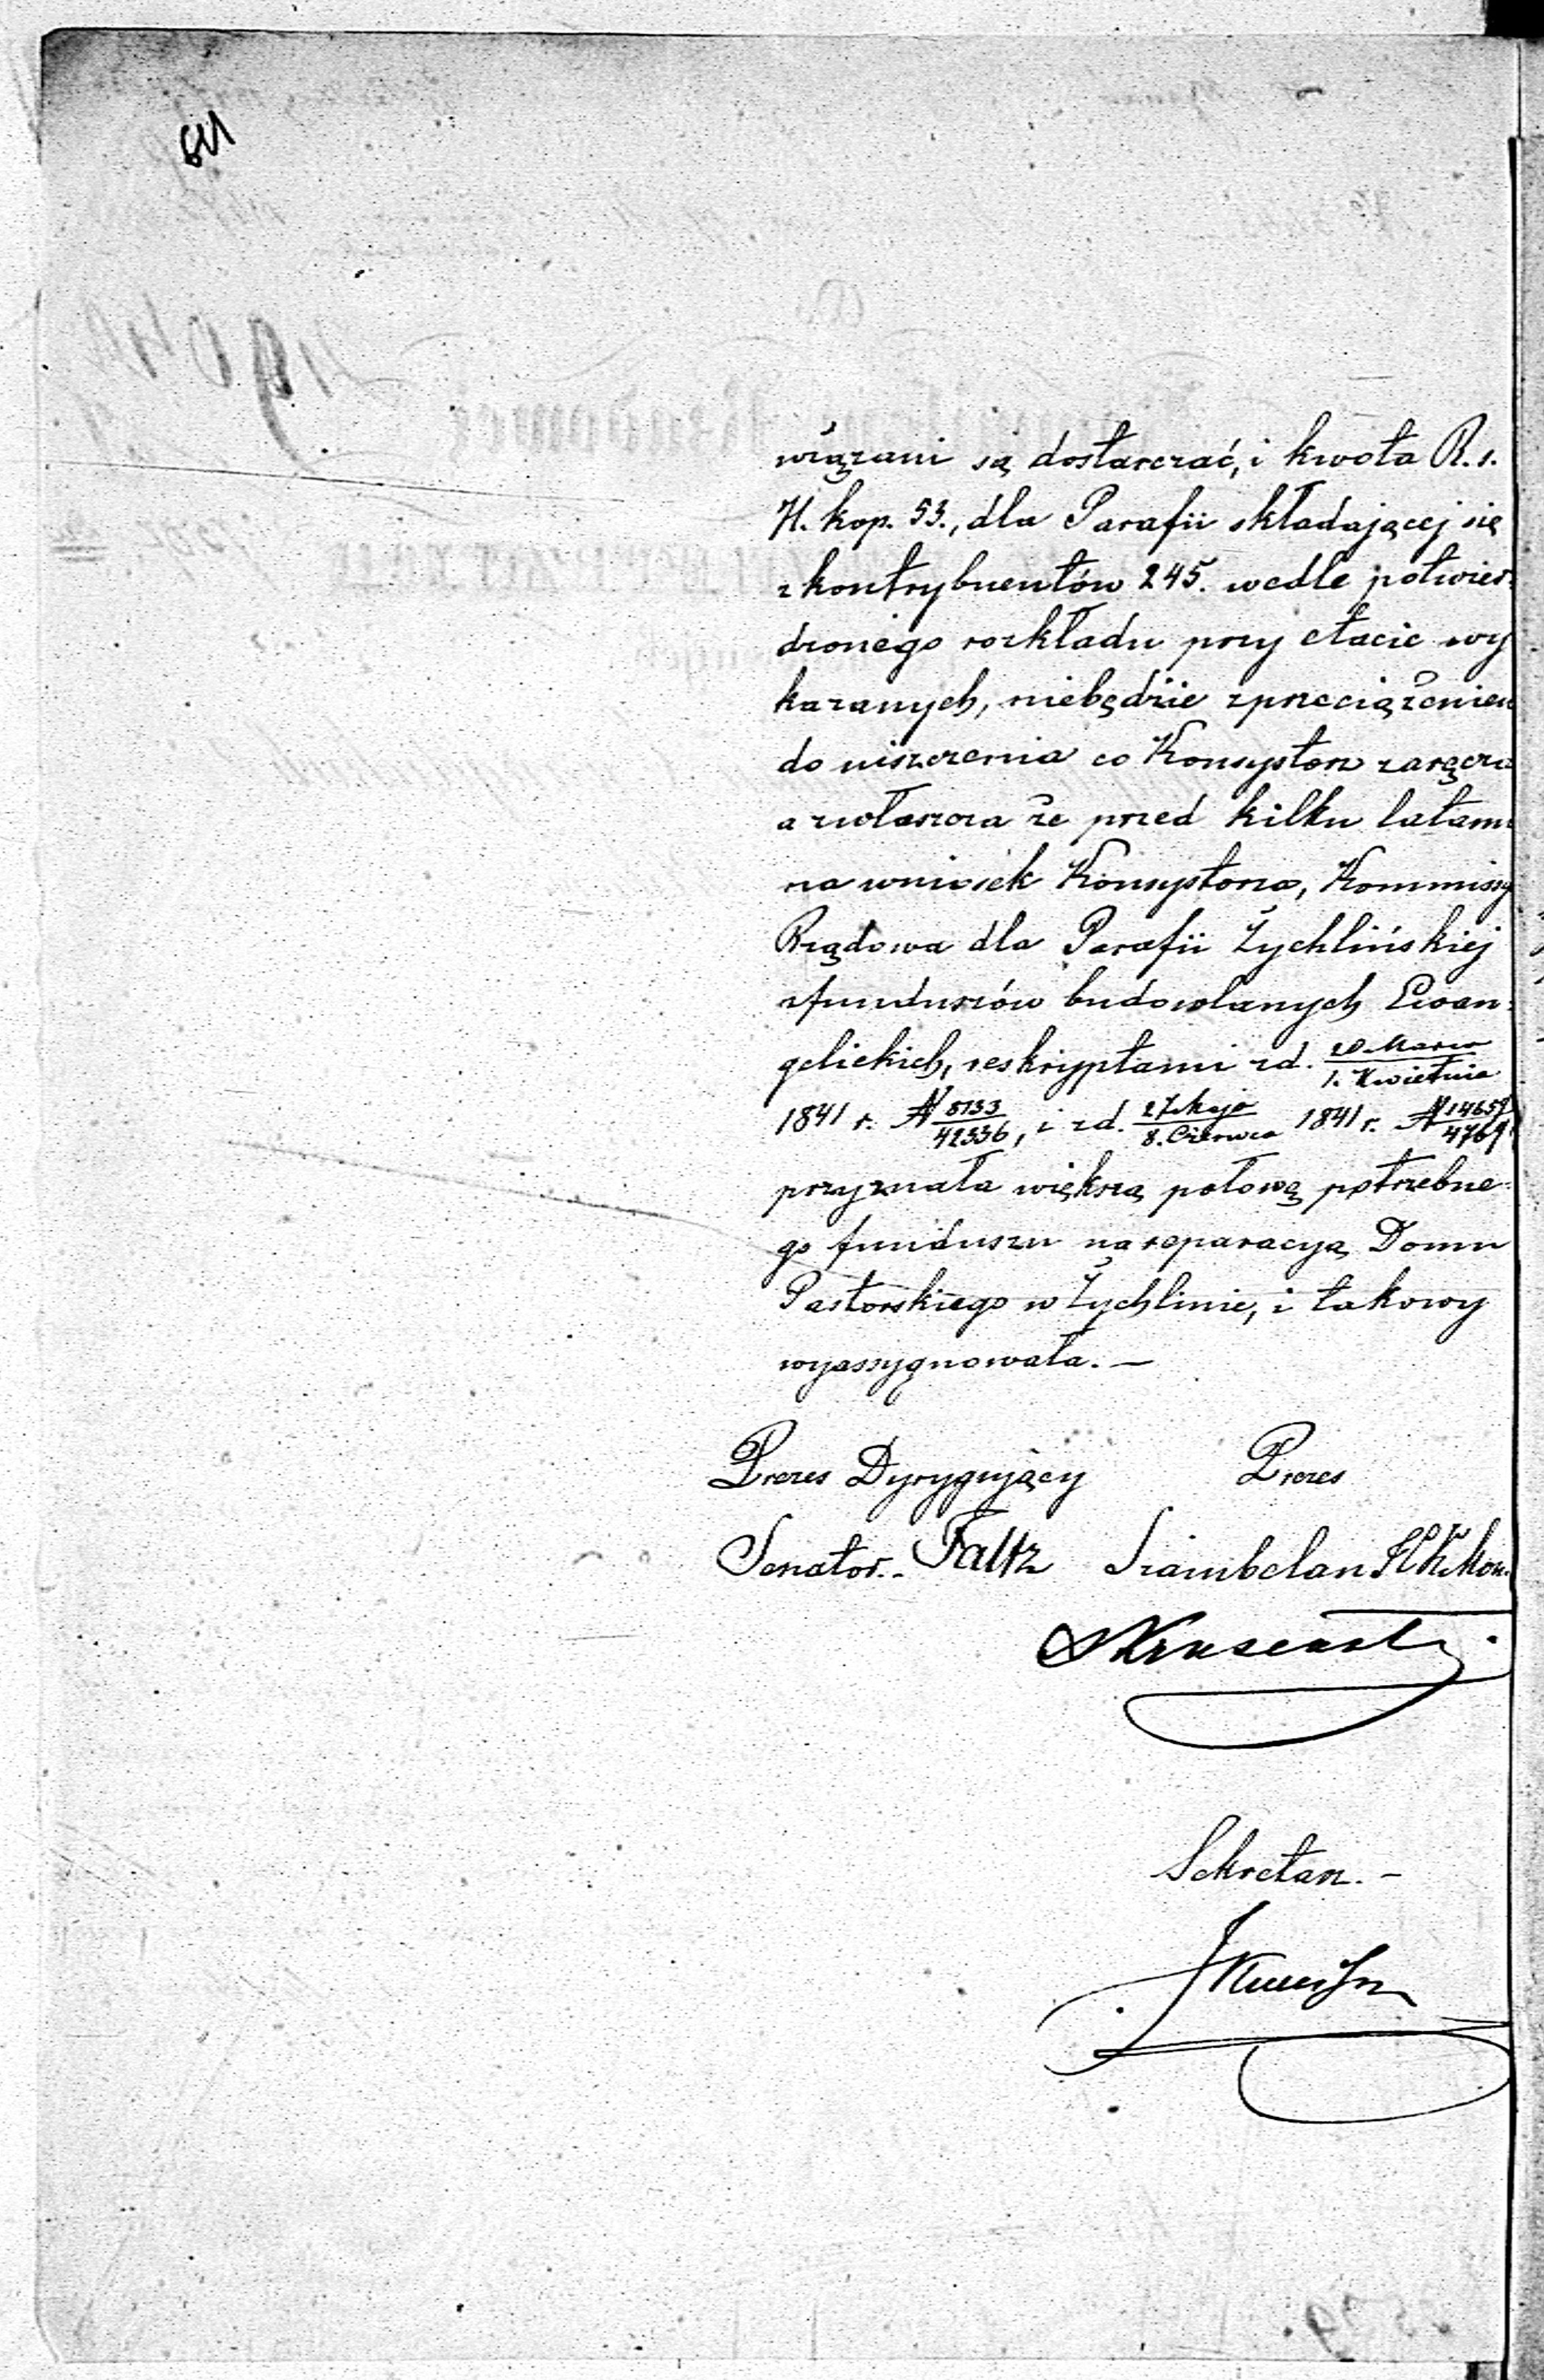 wiązani są dostarczać, i kwota R. s.
H. kop. 53., dla Parafii składającej się
z kontrybuentów 245. wedle potwier:
dzonego rozkładu przy etacie wy
kazanych, niebędzie zprzeciążeniem
do uiszczenia co Konsystorz zaręcza
a zwłaszcza że przed kilku latami
na wniosek Konsystorza, Kommissya
Rządowa dla Parafii Żychlińskiej
zfunduszów budowlanych Ewan:
gelickich, reskryptami zd. 20 Marca / 1. Kwietnia
1841 r. N 8133/42336, i zd. 27 Maja / 8. Czerwca 1841 r. N 14657/4769
przyznała większą połowę potrzebne:
go funduszu na reparacyą Domu
Pastorskiego w Żychlinie, i takowy
wyassygnowała. —
Prezes Dyrygujący Prezes
Senator.. Faltz Szambelan
Sekretarz. —